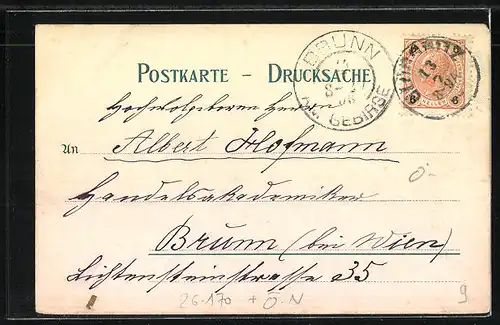 BRUNN
AM GEBIRGE
HELLER
POSTKARTE – DRUCKSACHE
Hochwolgeboren Herrn
An Albert Hofmann
Handelsakademiker
Brunn (bei Wien)
Lichtensteinstrasse 35
26-170 + Ö.N
9